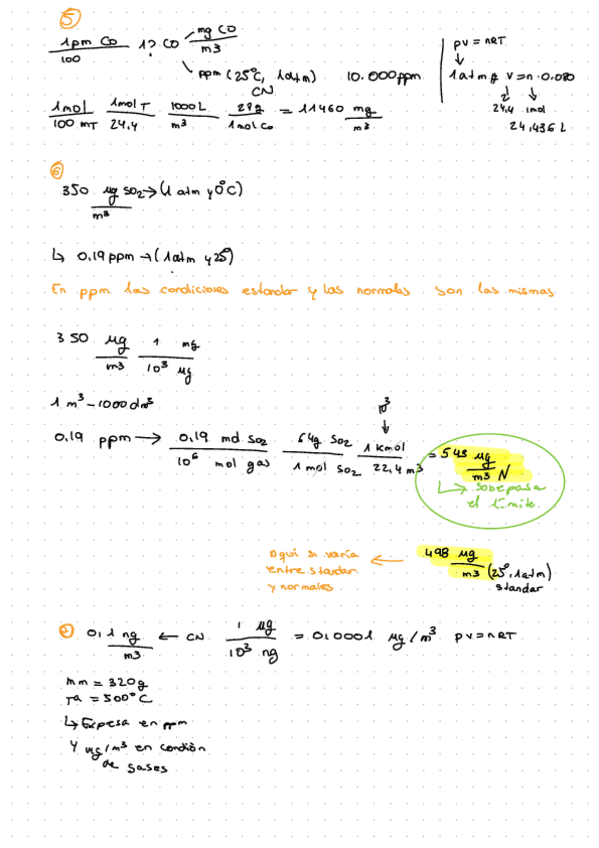 5
1pm CO / 100 1? CO mg CO / m3
ppm (25ºC, 1atm) 10.000ppm
CN
pv = nRT
1atm v = n · 0.080
24,4 1mol
24,436 L
1mol / 100 mT 1mol T / 24,4 1000L / m3 28g / 1mol CO = 11460 mg / m3
6
350 µg SO2 / m3 → (1 atm y 0ºC)
↳ 0,19 ppm → (1atm y 25º)
En ppm las condiciones estandar y las normales son las mismas.
350 µg / m3 1 mg / 10³ µg
1 m³ - 1000 dm³
10³
0,19 ppm → 0,19 mol SO2 / 10⁶ mol gas 64g SO2 / 1 mol SO2 1 Kmol / 22,4 m3 = 543 µg / m3 N
↳ sobepasa
el límite
Aquí si varía
entre standar
y normales
← 498 µg / m3 (25º, 1atm)
standar
0,1 ng / m3 ← CN 1 µg / 10³ ng = 0,0001 µg/m³ pv = nRT
mm = 320g
Ta = 500ºC
↳ Expesa en ppm
y µg/m³ en condión
de gases